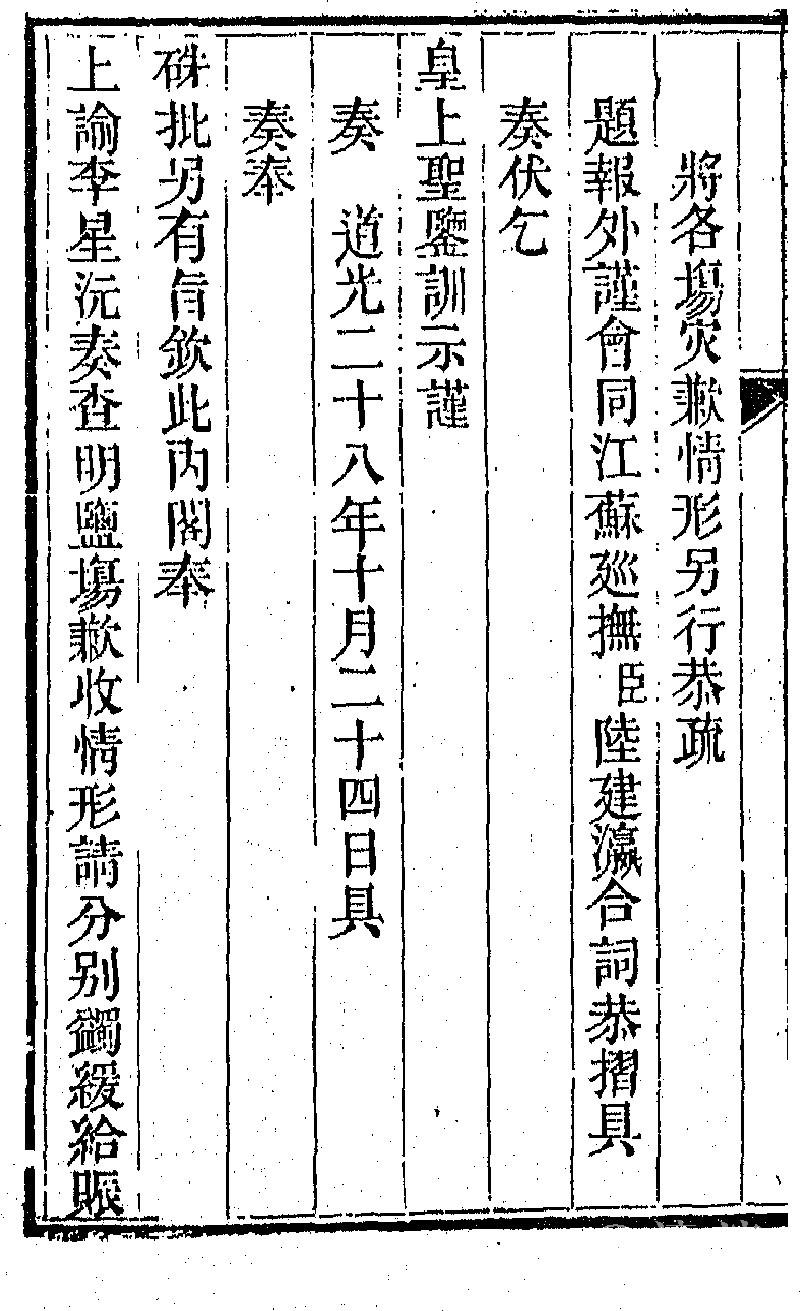 將各塲灾歉情形另行恭疏
題報外謹會同江蘇廵撫臣陸建瀛合詞恭摺具
奏伏乞
皇上聖鑒訓示謹
奏　道光二十八年十月二十四日具
奏奉
硃批另有旨欽此內閣奉
上諭李星沅奏查明鹽塲歉收情形請分别蠲緩給賑